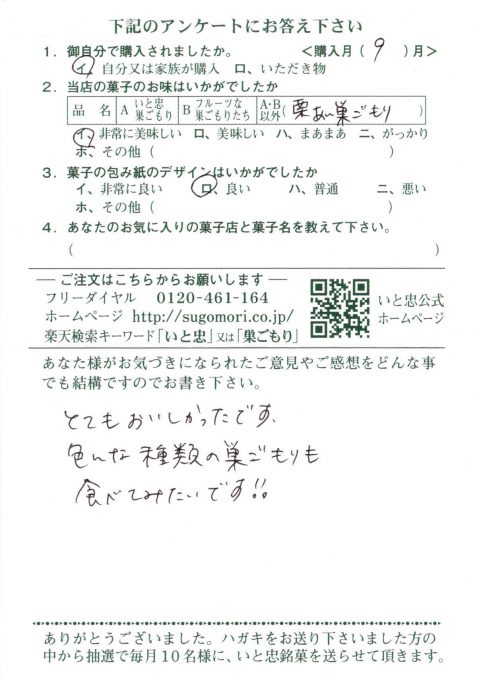 下記のアンケートにお答え下さい
1. 御自分で購入されましたか。 <購入月( 9 )月>
イ、自分又は家族が購入 ロ、いただき物
2. 当店の菓子のお味はいかがでしたか
品 名 A いと忠巣ごもり B フルーツな巣ごもりたち A・B以外 (栗あん巣ごもり)
イ、非常に美味しい ロ、美味しい ハ、まあまあ ニ、がっかり
ホ、その他 ( )
3. 菓子の包み紙のデザインはいかがでしたか
イ、非常に良い ロ、良い ハ、普通 ニ、悪い
ホ、その他 ( )
4. あなたのお気に入りの菓子店と菓子名を教えて下さい。
( )
ご注文はこちらからお願いします
フリーダイヤル 0120-461-164
ホームページ http://sugomori.co.jp/
楽天検索キーワード「いと忠」又は「巣ごもり」
いと忠公式
ホームページ
あなた様がお気づきになられたご意見やご感想をどんな事
でも結構ですのでお書き下さい。
とてもおいしかったです、
色んな種類の巣ごもりも
食べてみたいです!!
ありがとうございました。ハガキをお送り下さいました方の
中から抽選で毎月10名様に、いと忠銘菓を送らせて頂きます。